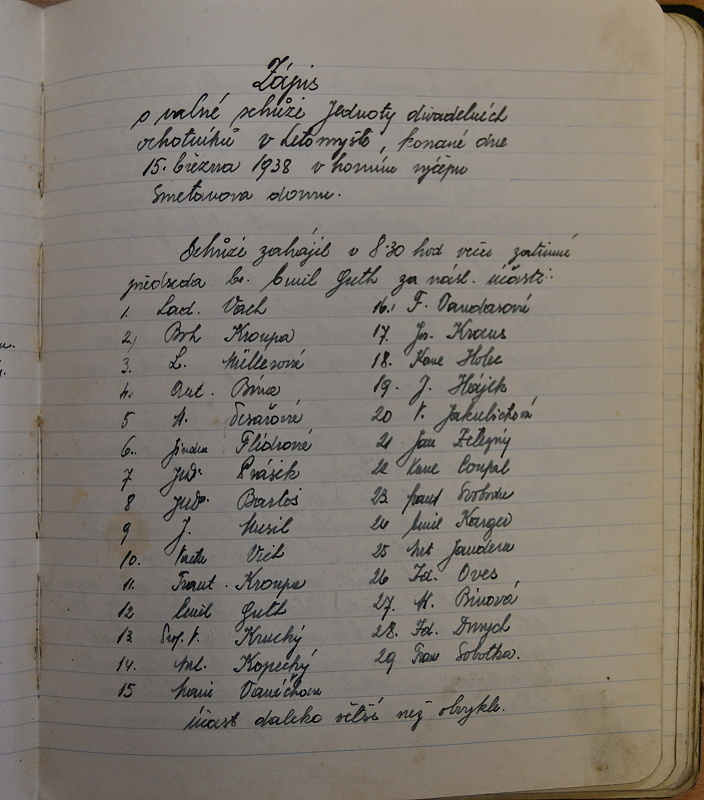 Zápis
o valné schůzi Jednoty divadelních
ochotníků v Litomyšli, konané dne
15. března 1938 v horním výčepu
Smetanova domu.
Schůzi zahájil v 8·30 hod večer zatímní
předseda br. Emil Guth za násl. účasti:
1. Lad. Vach
2. Boh Kroupa
3. L. Müllerová
4. Ant. Bína
5 Tesařová
6. Jindra Flídrová
7 JUDr.
8 JUDr. Bartoš
9 J. Musil
10. Vích
11. Frant. Kroupa
12 Emil Guth
13 Prof. V. Kruchý
14. Ant. Kopecký
15 Marie Vaníčková
16. F. Vandasová
17. Jos. Kraus
18. Karel Holec
19. J. Hájek
20 V. Jakubíčková
21 Jan Železný
22 Karel Coupal
23. Frant Svoboda
24 Emil Karger
25 Ant Jandera
26 Zd. Oves
27. M. Bínová
28. Zd. Dvrych
29 Frant Sobotka.
Účast daleko větší než obvykle.